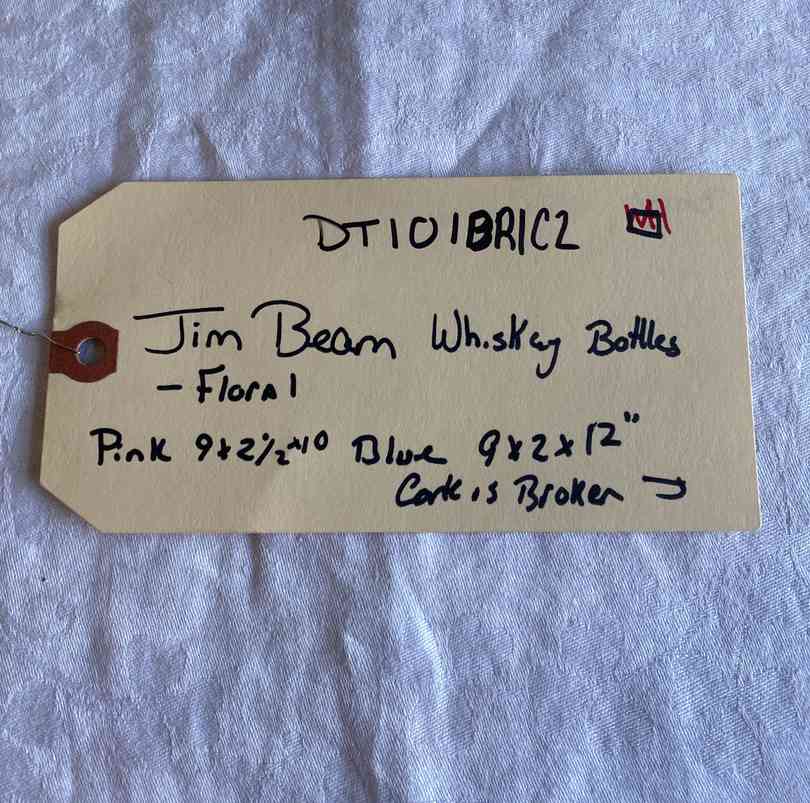 DT101BR1C2
Jim Beam Whiskey Bottles
- Floral
Pink 9x2½x10 Blue 9x2x12"
Cork is Broken